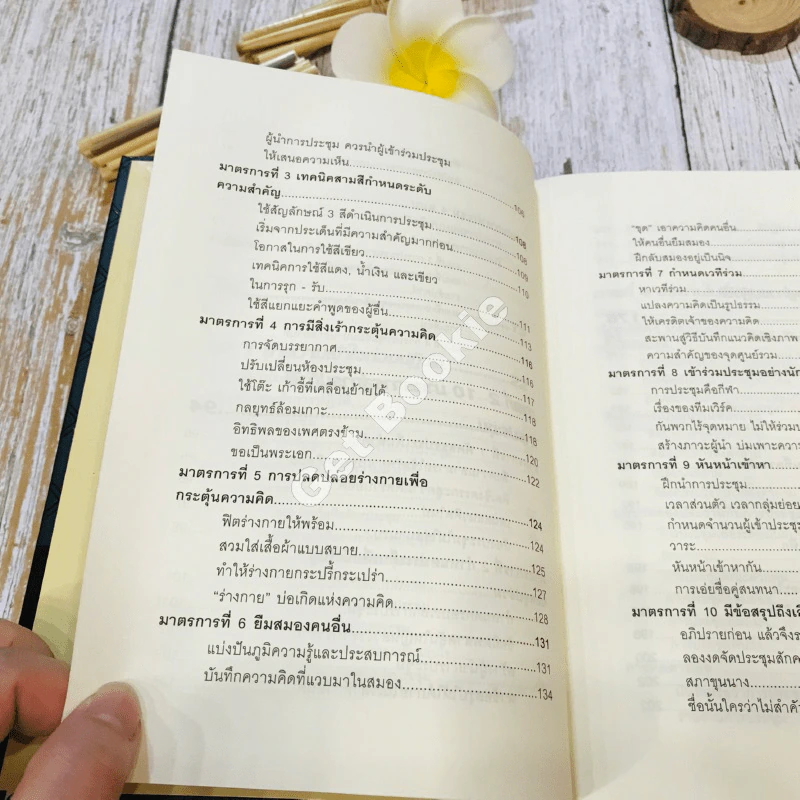 ผู้นำการประชุม ควรนำผู้เข้าร่วมประชุม
ให้เสนอความเห็น............106
มาตรการที่ 3 เทคนิคสามสีกำหนดระดับ
ความสำคัญ............108
ใช้สัญลักษณ์ 3 สีดำเนินการประชุม............108
เริ่มจากประเด็นที่มีความสำคัญมากก่อน............109
โอกาสในการใช้สีเขียว............110
เทคนิคการใช้สีแดง, น้ำเงิน และเขียว
ในการรุก - รับ............111
ใช้สีแยกแยะคำพูดของผู้อื่น............113
มาตรการที่ 4 การมีสิ่งเร้ากระตุ้นความคิด............116
การจัดบรรยากาศ............116
ปรับเปลี่ยนห้องประชุม............116
ใช้โต๊ะ เก้าอี้ที่เคลื่อนย้ายได้............118
กลยุทธ์ล้อมเกาะ............118
อิทธิพลของเพศตรงข้าม............120
ขอเป็นพระเอก............122
มาตรการที่ 5 การปลดปล่อยร่างกายเพื่อ
กระตุ้นความคิด............124
ฟิตร่างกายให้พร้อม............124
สวมใส่เสื้อผ้าแบบสบาย............125
ทำให้ร่างกายกระปรี้กระเปร่า............127
"ร่างกาย" บ่อเกิดแห่งความคิด............128
มาตรการที่ 6 ยืมสมองคนอื่น............131
แบ่งปันภูมิความรู้และประสบการณ์............131
บันทึกความคิดที่แวบมาในสมอง............134
"ขุด" เอาความคิดคนอื่น
ให้คนอื่นยืมสมอง
ฝึกลับสมองอยู่เป็นนิจ
มาตรการที่ 7 กำหนดเวทีร่วม
หาเวทีร่วม
แปลงความคิดเป็นรูปธรรม
ให้เครดิตเจ้าของความคิด
สะพานสู่วิธีบันทึกแนวคิดเชิงภาพ
ความสำคัญของจุดศูนย์รวม
มาตรการที่ 8 เข้าร่วมประชุมอย่างนัก
การประชุมคือกีฬา
เรื่องของทีมเวิร์ค
กันพวกไร้จุดหมาย ไม่ให้ร่วมป
สร้างภาวะผู้นำ บ่มเพาะความ
มาตรการที่ 9 หันหน้าเข้าหา
ฝึกนำการประชุม
เวลาส่วนตัว เวลากลุ่มย่อย
กำหนดจำนวนผู้เข้าประชุ
วาระ
หันหน้าเข้าหากัน
การเอ่ยชื่อคู่สนทนา
มาตรการที่ 10 มีข้อสรุปถึงเสี
อภิปรายก่อน แล้วจึงร
ลองงดจัดประชุมสักค
สภาขุนนาง
ชื่อนั้นใครว่าไม่สำคั
Get Bookie